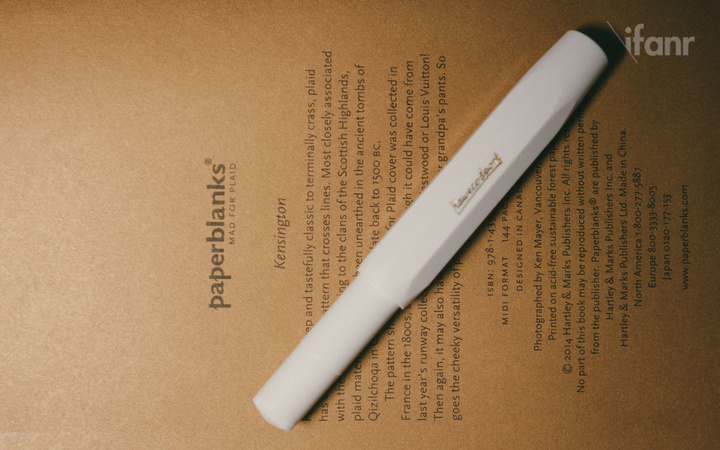 ifanr
paperblanks®
MAD FOR PLAID
Kensington
ep and tastefully classic to terminally crass, plaid
has pattern that crosses lines. Most closely associated
with the ing to the clans of the Scottish Highlands,
plaid mate been unearthed in the ancient tombs of
Qizilchoqa in late back to 1500 BC.
The pattern s for Plaid cover was collected in
France in the 1800s, gh it could have come from
last year's runway collec estwood or Louis Vuitton!
Then again, it may also ha r grandpa's pants. So
goes the cheeky versatility of p
ISBN: 978-1-43
MIDI FORMAT 144 PAG
DESIGNED IN CANAD
Photographed by Ken Mayer, Vancouver
Printed on acid-free sustainable forest pap
© 2014 Hartley & Marks Publishers Inc. All rights re
No part of this book may be reproduced without written per
from the publisher. Paperblanks® are published by
Hartley & Marks Publishers Inc. and
Hartley & Marks Publishers Ltd. Made in China.
North America 1-800-277-5887
Europe 800-3333-8005
Japan 0120-177-153
www.paperblanks.com